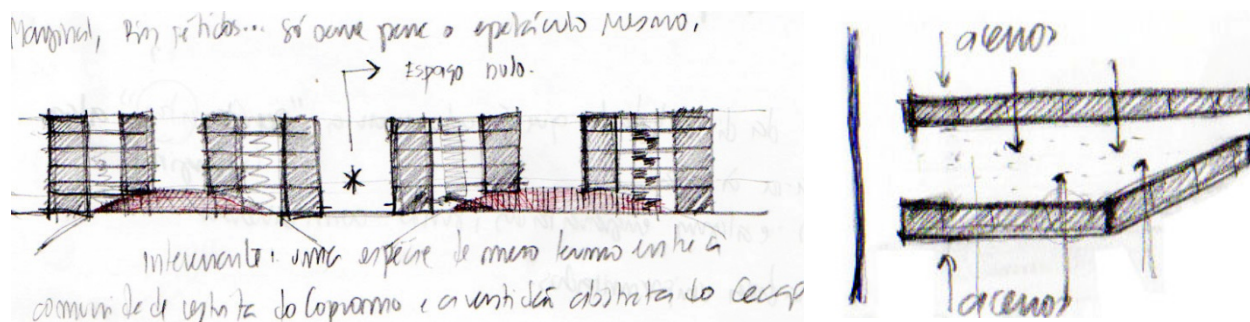 Marginal, Rios fétidos... só serve para o espetáculo mesmo.
Espaço nulo.
interessante: uma espécie de meio termo entre a
comunidade restrita do Copromo e a vastidão abstrata do Cecap
acenos
acenos